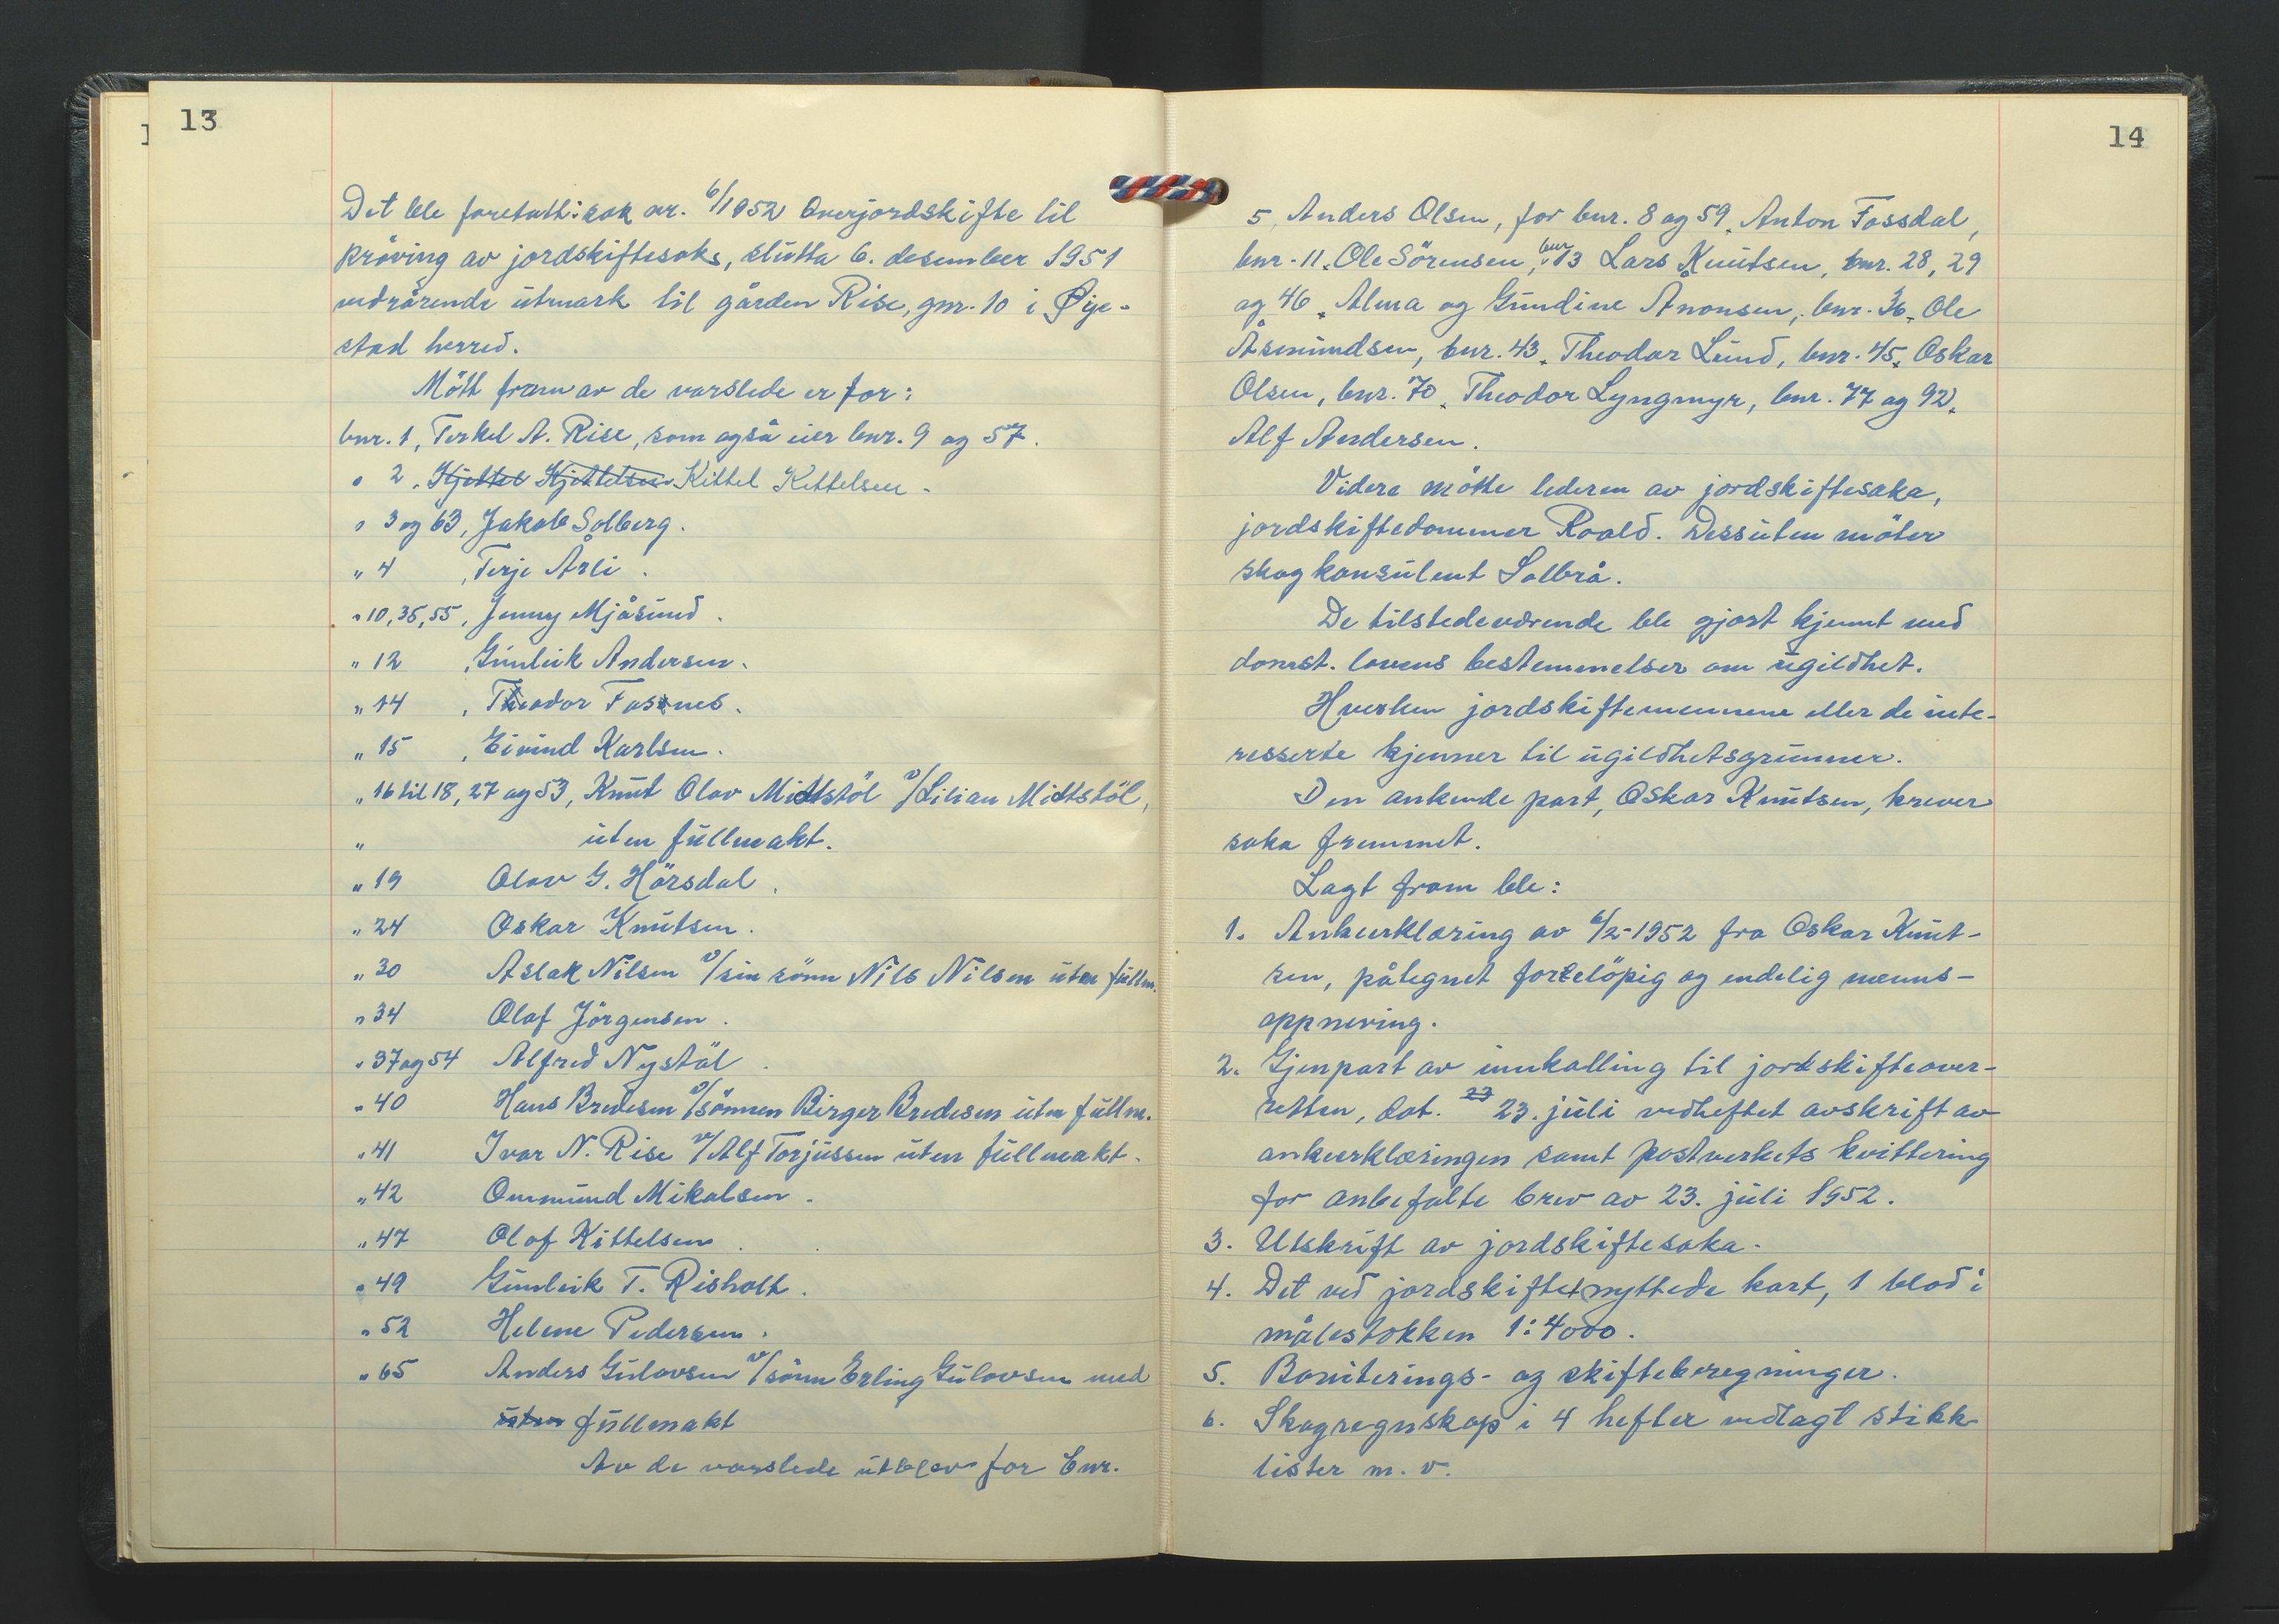 13
Det ble foretatt: sak nr. 6/1952 Overjordskifte til
prøving av jordskiftesak, slutta 6. desember 1951
vedrørende utmark til gården Rise, gnr. 10 i Øye-
stad herred.
Møtt fram av de varslede er for:
bnr. 1, Terkel A. Rise, som også eier bnr. 9 og 57.
" 2, Kjettel Kjettelsen Kittel Kettelsen.
" 3 og 63, Jakob Solberg.
" 4 , Terje Årli.
" 10, 35, 55, Jenny Mjåsund.
" 12 , Gunleik Andersen.
" 14 , Theodor Fosnes.
" 15 , Eivind Karlsen.
" 16 til 18, 27 og 53, Knut Olav Midtstøl v/Lilian Midtstøl,
" uten fullmakt.
" 19 Olav G. Hørsdal.
" 24 Oskar Knutsen.
" 30 Aslak Nilsen v/sin sønn Nils Nilsen uten fullm.
" 34 Olaf Jörgensen.
" 37 og 54 Alfred Nystøl.
" 40 Hans Bredesen v/sønnen Birger Bredesen uten fullm.
" 41 Ivar N. Rise v/Alf Torjussen uten fullmakt.
" 42 Ommund Mikalsen.
" 47 Olaf Kittelsen.
" 49 Gunleik T. Risholt.
" 52 Helene Pedersen.
" 65 Anders Gulovsen v/sønn Erling Gulovsen med
uten fullmakt
Av de varslede utblev for bnr.
14
5, Anders Olsen, for bnr. 8 og 59, Anton Fossdal,
bnr. 11, Ole Sörensen, bnr. 13 Lars Knutsen, bnr. 28, 29
og 46, Alma og Gundine Aanonsen, bnr. 36, Ole
Åsmundsen, bnr. 43, Theodor Lund, bnr. 45, Oskar
Olsen, bnr. 70, Theodor Lyngmyr, bnr. 77 og 92,
Alf Andersen.
Videre møtte lederen av jordskiftesaka,
jordskiftedommer Roald. Dessuten møter
skogkonsulent Solbrå.
De tilstedeværende ble gjort kjent med
domst. lovens bestemmelser om ugildhet.
Hverken jordskiftemennene eller de inte-
resserte kjenner til ugildhetsgrunner.
Den ankende part, Oskar Knutsen, krever
saka fremmet.
Lagt fram ble:
1. Ankeerklæring av 6/2-1952 fra Oskar Knut-
sen, påtegnet foreløpig og endelig menns-
oppnevning.
2. Gjenpart av innkalling til jordskifteover-
retten, dat. 23 23. juli vedheftet avskrift av
ankeerklæringen samt postverkets kvittering
for anbefalte brev av 23. juli 1952.
3. Utskrift av jordskiftesaka.
4. Det ved jordskiftet nyttede kart, 1 blad i
målestokken 1:4000.
5. Boniterings- og skifteberegninger.
6. Skogregnskap i 4 hefter vedlagt stikk-
lister m. v.